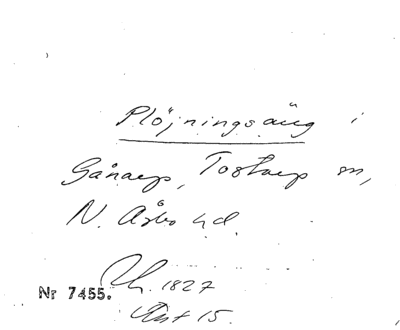 Plöjningsäng i
Gånarp, Tostarp sn,
N. Åsbo hd.
1827
Nr 7455.
15.